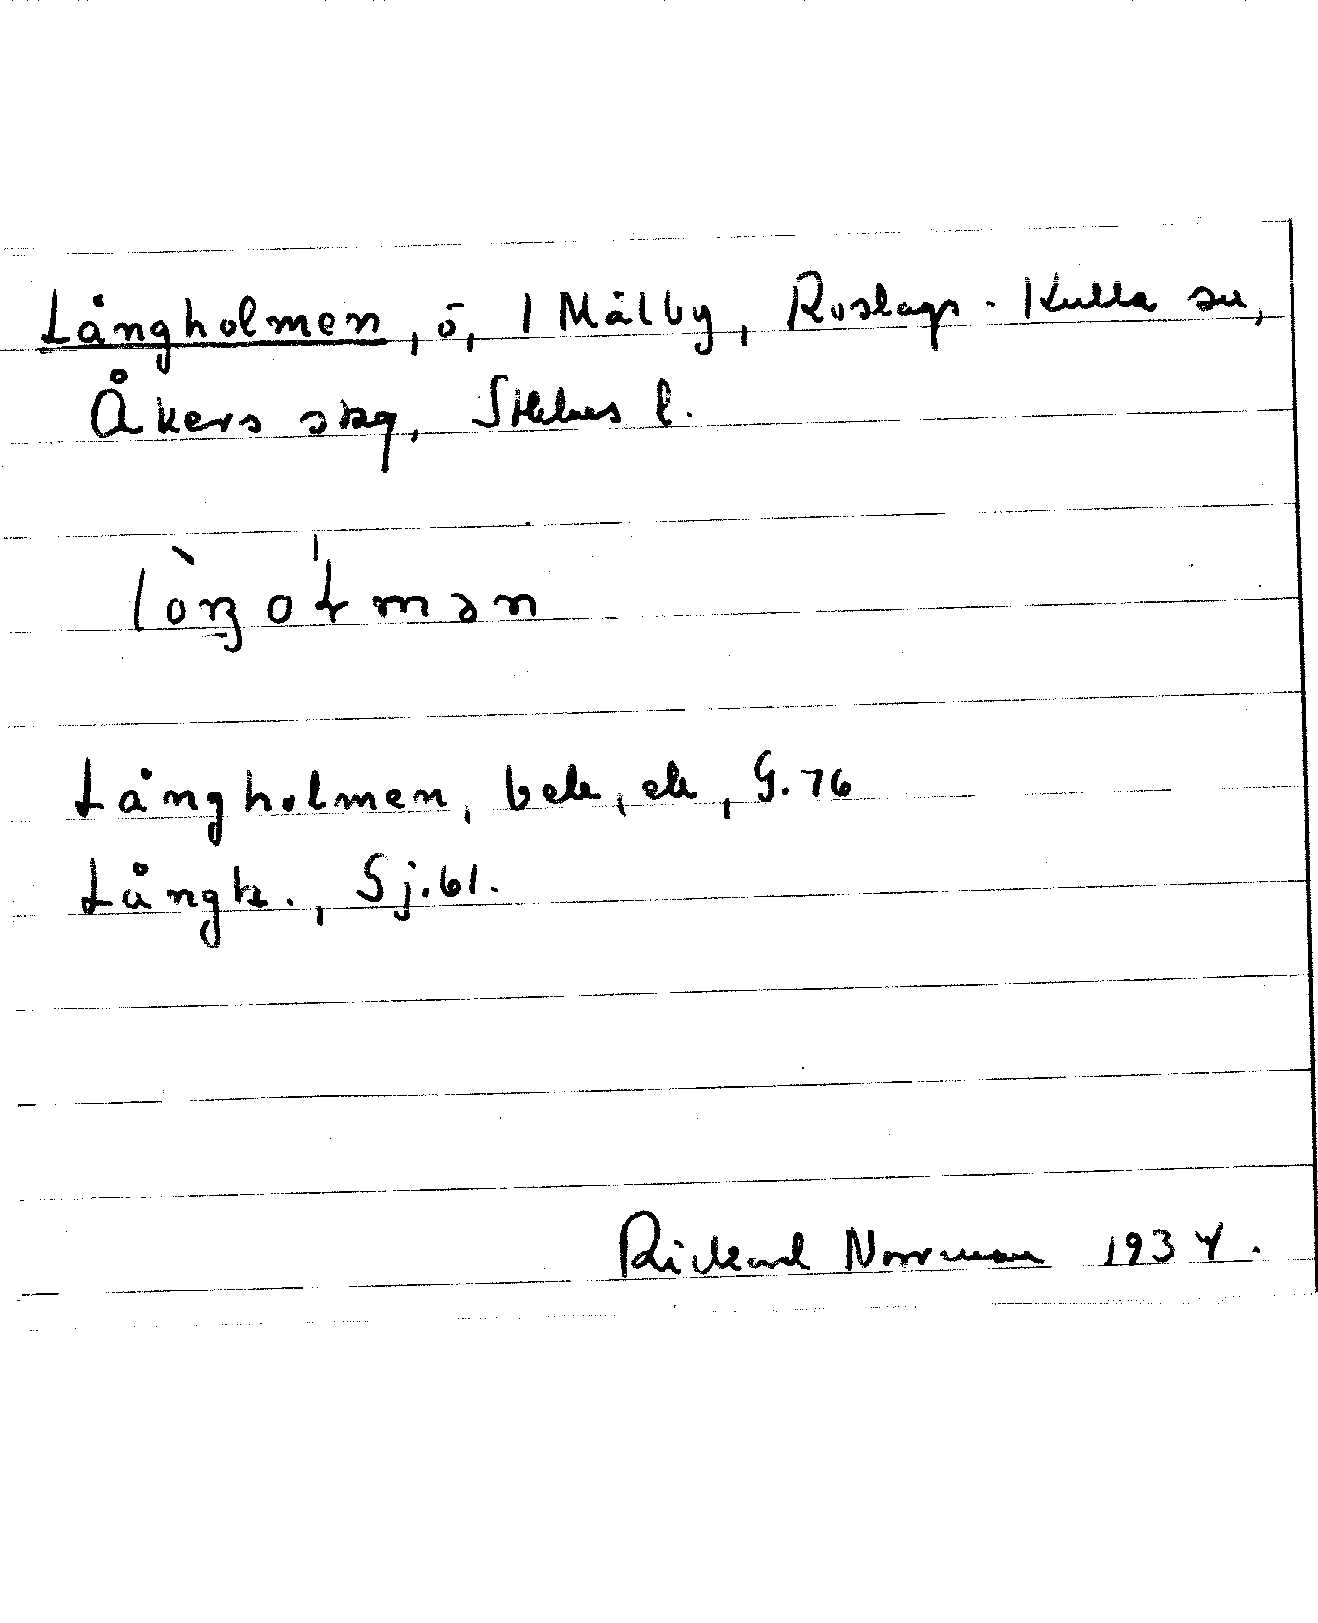 Långholmen, ö, 1 Målby, Roslags-Kulla sn,
Åkers skg, Sthlms l.
lòŋoɫmən
Långholmen, bete, ek, G.76
Långh., Sj.61.
Rickard Norrman 1934.